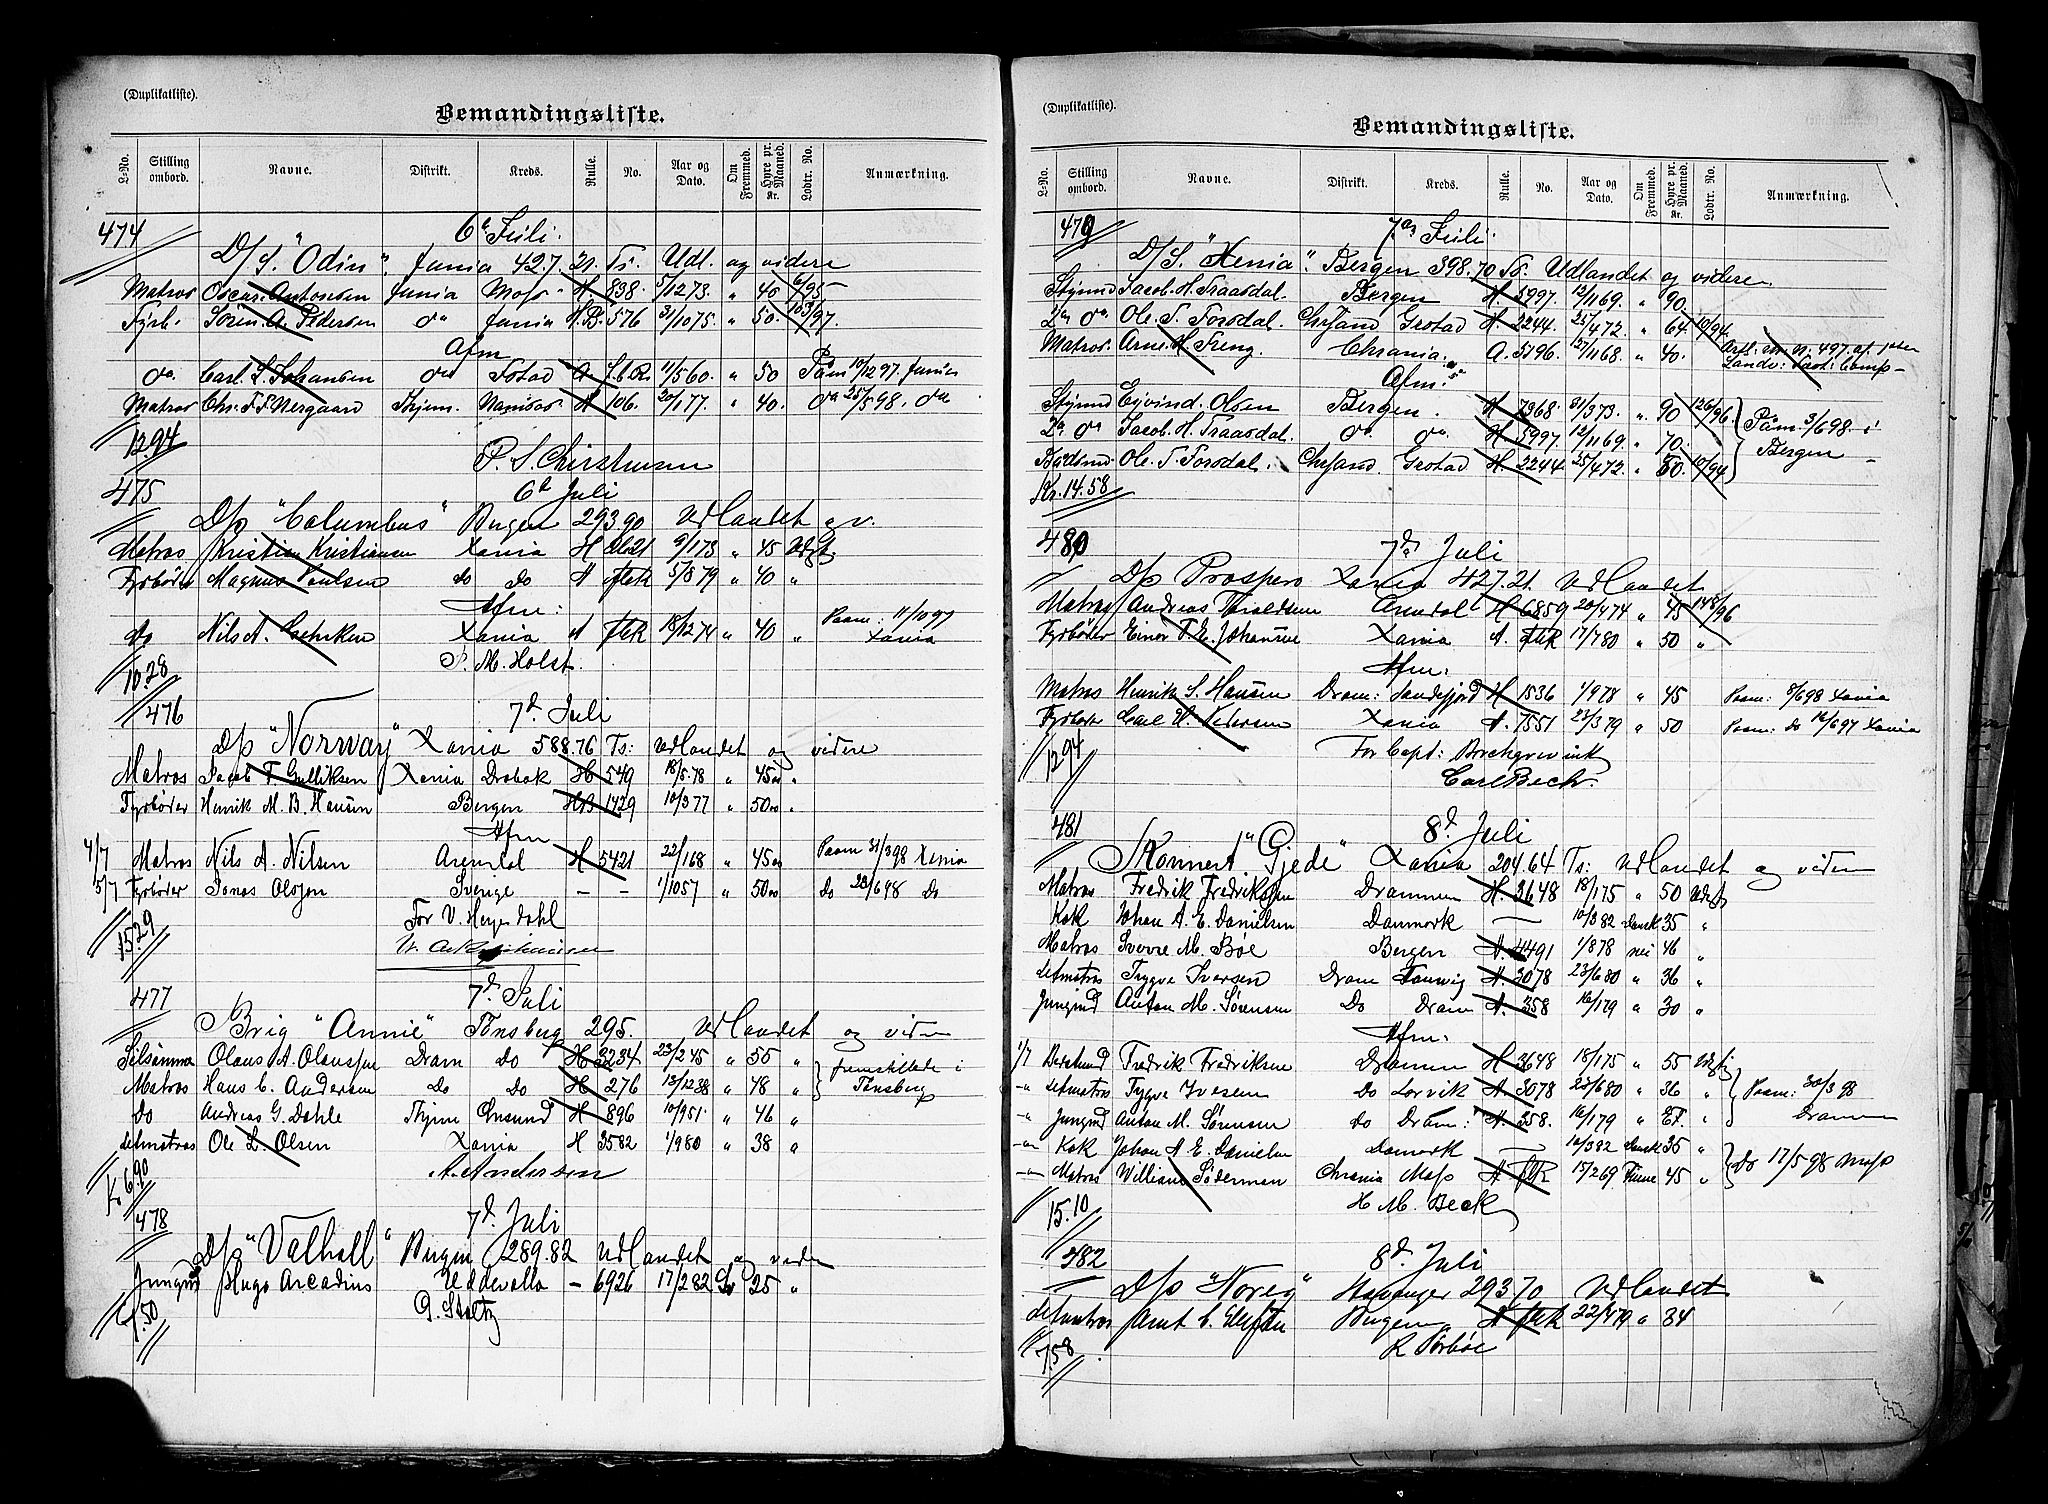 (Duplikatliste).
Bemandingsliste.
L-No. Stilling ombord. Navne. Distrikt. Kreds. Rulle. No. Aar og Dato. Om Fremmed. Hyre pr. Maaned. Kr. Lodtr. No. Anmærkning.
474 6te Juli.
D/S. "Odin". Xania 427.21. Ts. Udl. og videre
Matros Oscar Antonsen Xania Moss H. 838. 5/12 73. " 40 6/95
Fyrb. Sören A. Pedersen do Xania H.B. 576 31/10 75. " 50. 103/97.
Afm
do. Carl S. Johansen do A. 11/5 60. " 50 Paam 10/12 97.
Matros Chr. F. F. Nergaard Thjem. Namsos A 106. 20/1 77. " 40. do 25/5 98. do
12.94 P. S. Christensen
475 6d Juli
D/s "Columbus" Bergen 293.90 Udlandet o.v.
Matros Kristian Kristiansen Xania H 2/1 73 " 45 Udgt.
Fyrböder Magnus Poulsen do do A ftek 5/8 79 " 40 "
Afm:
do Nils A. Xania A ftek 18/12 74 " 40 " Paam: 11/10 97 Xania
10.28 P. M. Holst.
476 7d. Juli
D/s "Norway" Xania 588.76 Ts: Udlandet og videre
Matros Jacob F. Gulliksen Xania Drobak H 549 18/5.78 " 45 00 "
Fyrböder Henrik M. B. Hansen Bergen HB 1429 10/3 77 " 50 00 "
Afm
4/7 Matros Nils A. Nilsen Arendal H 5421 22/1 68 " 45 00 Paam 31/3 98 Xania
5/7 Fyrböder Jonas Olsson Sverige - - 1/10 57 " 50 00 Do 28/6 98 Do
15.29 For V. Heyerdahl
477 7d. Juli
Brig "Annie" Tönsberg 295. Udlandet og viden
Olaus A. Olaussen Dram Do H 3234 23/2 45 " 55 " fremstillede i
Matros Hans C. Andersen Do Do H 276 13/12 38 " 48 " Tönsberg
Do Andreas G. Dahle Thjem H 896 10/9 51. " 46 "
Letmatros Ole L. Olsen Xania H 3582 1/9 80 " 38 "
Kr 6.90 A. Andersen
478 7d. Juli
D/s "Valhall" Bergen 289.82 Udlandet og viden
Jungm Hugo Arcadius Uddevalla - 6926 17/2 82 Sv 25 "
7.50 G. Stoltz
(Duplikatliste).
Bemandingsliste.
L-No. Stilling ombord. Navne. Distrikt. Kreds. Rulle. No. Aar og Dato. Om Fremmed. Hyre pr. Maaned. Kr. Lodtr. No. Anmærkning.
479 7de Juli.
D/S. "Xenia". Bergen 398.70 Ts. Udlandet og videre.
Styrmd Jacob. H. Traasdal. Bergen H. 5997. 12/11 69. " 90.
2den do. Ole. T. Forsdal. Chrsand Grostad H. 2244. 25/4 72. " 64. 10/94
Matros. Arne. H. Treng. Chrania. A. 5196. 27/11 68. " 40.
Afm:
Styrmd Ejvind. Olsen Bergen. H 7368. 31/3 73. " 90 126/96 Paam. 3/6 98. i
2n do Jacob. H. Traasdal. do. do. H. 5997 12/11 69. " 70. Bergen
Baadsmd. Ole. T. Forsdal. Chrsand Grostad H. 2244 25/4 72. " 50. 10/94
Kr. 14.58
480 7de Juli
D/s Prospero Xania 427.21. Udlandet
Matros Andreas Taraldsen Arendal H 6859 20/4 74 " 45 148/96
Fyrböder Einar F. E. Johansen Xania A. ftek 17/7 80 " 50 "
Afm:
Matros Henrik S. Hansen Dram: Sandefjord H 1536 1/9 78 " 45 Paam: 8/6 98 Xania
Fyrböder Carl H. Petersen Xania A. 7551 23/3 79 " 50 Paam: Do 14/6 97 Xania
12.94 For Capt: Borchgrevink
Carl Bech.
481 8d. Juli
Skonnert "Gjede" Xania 204.64 Ts: Udlandet og viden
Matros Fredrik Fredriksen Drammen H. 3648 18/1 75 " 50 Udgt
Kok Johan A. E. Danielsen Danmark — 10/3 82 Dansk 35 "
Matros Sverre M. Böe Bergen A. 4491 1/8 78 nei 46 "
Letmatros Trygve Iversen Dram A. 3078 23/6 80 " 36 "
Jungmd Anton M. Sörensen Do Dram A. 358 16/1 79 " 30 "
Afm:
1/7 Fredrik Fredriksen Drammen H 3648 18/1 75 " 55 Udgtg
-"- Letmatros Trygve Iversen Do Larvik A. 3078 23/6 80 " 36 " Paam: 30/3 98
-"- Jungmd Anton M. Sörensen do Dram: A. 358. 16/1 79 " 27. " Drammen
-"- Kok Johan A. E. Danielsen Danmark — 10/3 82 Dansk 35 " Do 17/5 98 Moss
-"- Matros William Söderman Chrania Moss A ftk 15/2 69 Finne 45 "
15.10 H. M. Beck
482 8d. Juli
D/s "Noreg" Stavanger 293.70 Udlandet
Letmatros Bergen A ftek 22/4 79 " 34
7.58 R